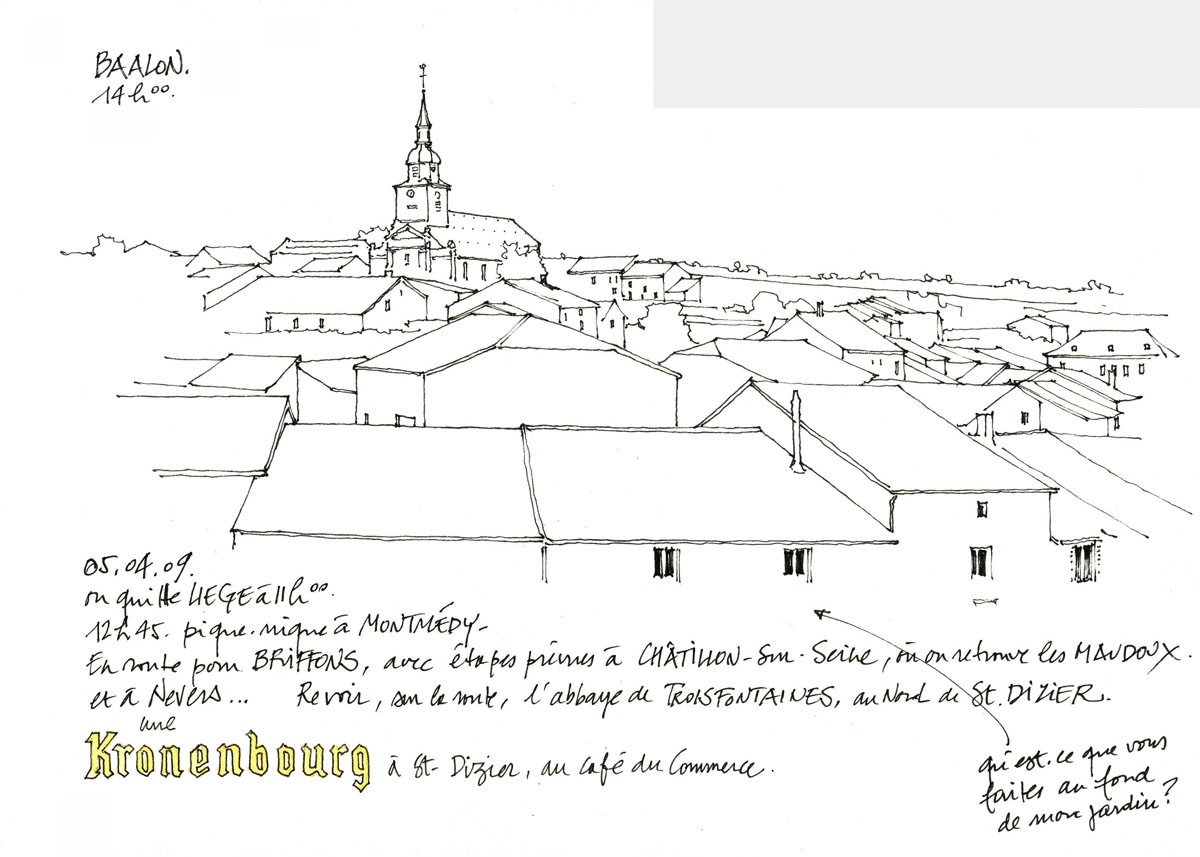 BAALON.
14h00.
05.04.09.
on quitte LIEGE à 11h00.
12h45. pique-nique à MONTMÉDY-
En route pour BRIFFONS, avec étapes prévues à CHÂTILLON-Sur-Seine, où on retrouve les MAUDOUX.
et à Nevers... Revoir, sur la route, l'abbaye de TROISFONTAINES, au Nord de St. DIZIER.
une
Kronenbourg à St-Dizier, au Café du Commerce.
qu'est-ce que vous
faites au fond
de mon jardin?